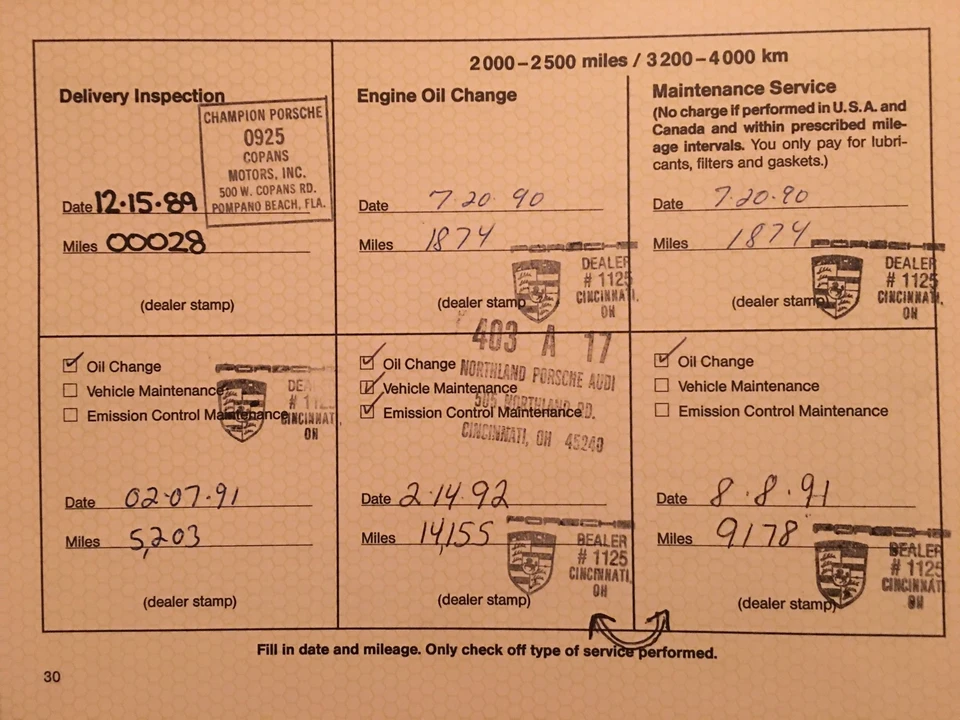 2000–2500 miles / 3200–4000 km
Delivery Inspection
CHAMPION PORSCHE
0925
COPANS
MOTORS, INC.
500 W. COPANS RD.
POMPANO BEACH, FLA.
Date 12·15·89
Miles 00028
(dealer stamp)
Engine Oil Change
Date 7·20·90
Miles 1874
(dealer stamp)
PORSCHE
DEALER
# 1125
CINCINNATI,
OH
Maintenance Service
(No charge if performed in U.S.A. and
Canada and within prescribed mile-
age intervals. You only pay for lubri-
cants, filters and gaskets.)
Date 7·20·90
Miles 1874
(dealer stamp)
PORSCHE
DEALER
# 1125
CINCINNATI,
OH
Oil Change
Vehicle Maintenance
Emission Control Maintenance
PORSCHE
DEA
# 1125
CINCINNATI,
OH
Date 02·07·91
Miles 5,203
(dealer stamp)
403 A 17
NORTHLAND PORSCHE AUDI
505 NORTHLAND RD.
CINCINNATI, OH 45240
Oil Change
Vehicle Maintenance
Emission Control Maintenance
Date 2·14·92
Miles 14,155
(dealer stamp)
PORSCHE
DEALER
# 1125
CINCINNATI,
OH
Oil Change
Vehicle Maintenance
Emission Control Maintenance
Date 8·8·91
Miles 9178
(dealer stamp)
PORSCHE
DEALER
# 1125
CINCINNATI
OH
Fill in date and mileage. Only check off type of service performed.
30